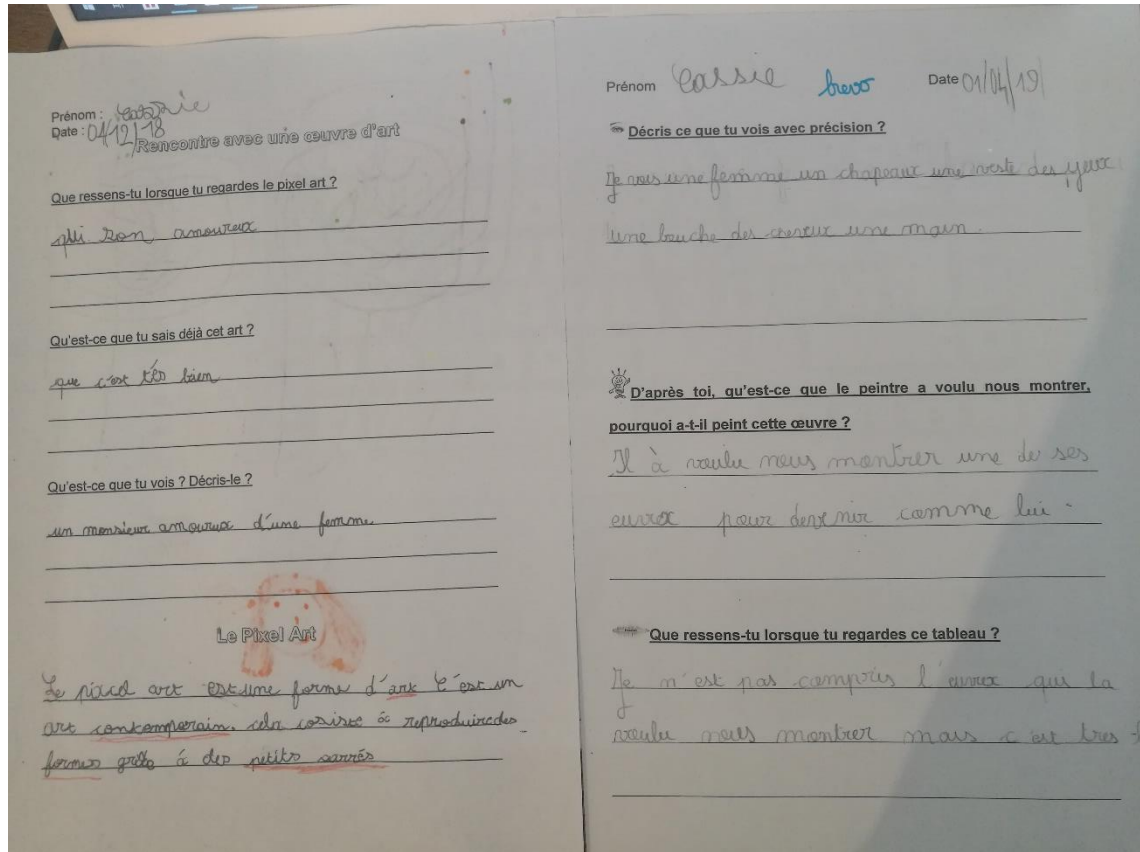 Prénom : Cassie
Date : 04/12/18
Rencontre avec une œuvre d'art
Que ressens-tu lorsque tu regardes le pixel art ?
son amoureux
Qu'est-ce que tu sais déjà cet art ?
que c'est trés bien
Qu'est-ce que tu vois ? Décris-le ?
un monsieur amoureux d'une femme
Le Pixel Art
Le pixcel art est une forme d'art C'est un
art contemporain. cela cosiste à reproduire des
formes à des petits carrés
Prénom Cassie bravo Date 01/04/19
Décris ce que tu vois avec précision ?
Je vois une femme un chapeaux une veste des yeux
une bouche des cheveux une main.
D'après toi, qu'est-ce que le peintre a voulu nous montrer,
pourquoi a-t-il peint cette œuvre ?
Il à voulu nous montrer une de ses
euvrox pour devenir comme lui.
Que ressens-tu lorsque tu regardes ce tableau ?
Je n'est pas compris l'euvrox qui la
voulu nous montrer mais c'est tres